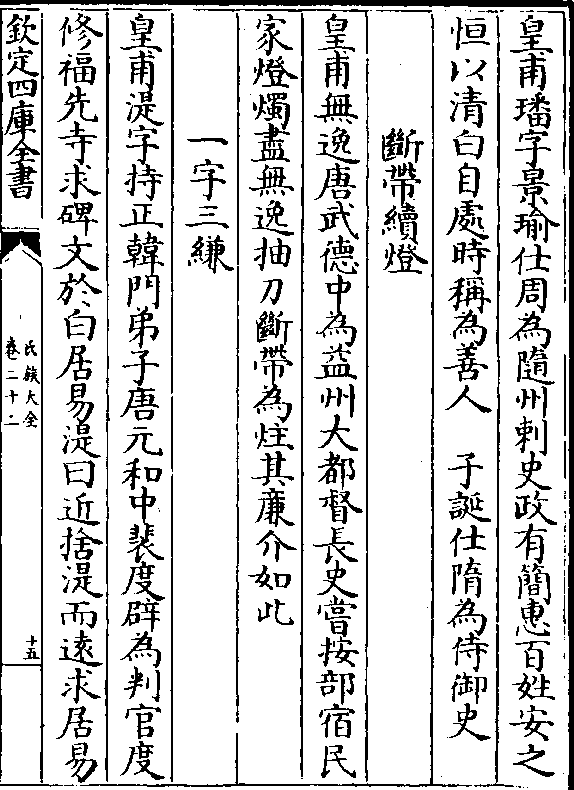 皇甫璠字景瑜仕周為隨州刺史政有簡惠百姓安之
恒以清白自處時稱為善人　子誕仕隋為侍御史
斷帶續燈
皇甫無逸唐武德中為益州大都督長史嘗按部宿民
家燈燭盡無逸抽刀斷帶為炷其廉介如此
一字三縑
皇甫湜字持正韓門弟子唐元和中裴度辟為判官度
修福先寺求碑文於白居易湜曰近捨湜而遠求居易
欽定四庫全書
氏族大全
卷二十二
十五